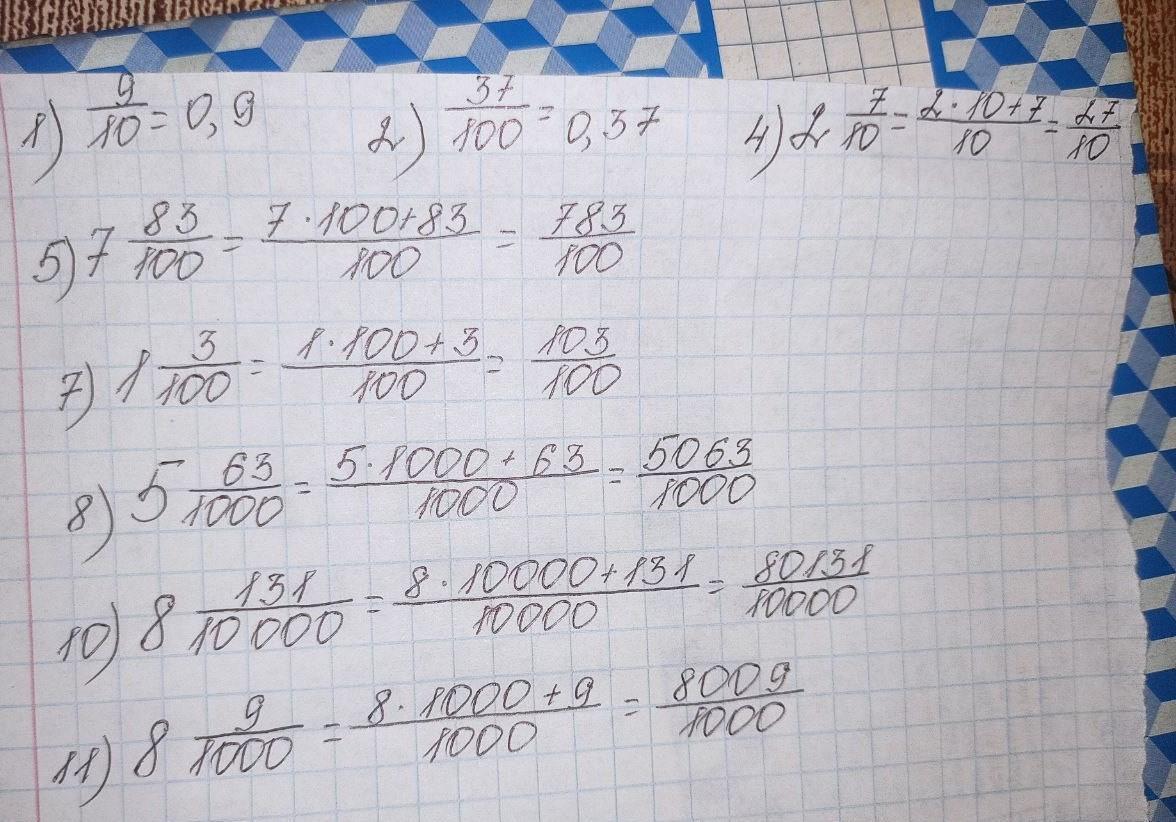 1) 9/10 = 0,9 2) 37/100 = 0,37 4) 2 7/10 = 2·10+7/10 = 27/10
5) 7 83/100 = 7·100+83/100 = 783/100
7) 1 3/100 = 1·100+3/100 = 103/100
8) 5 63/1000 = 5·1000+63/1000 = 5063/1000
10) 8 131/10000 = 8·10000+131/10000 = 80131/10000
11) 8 9/1000 = 8·1000+9/1000 = 8009/1000